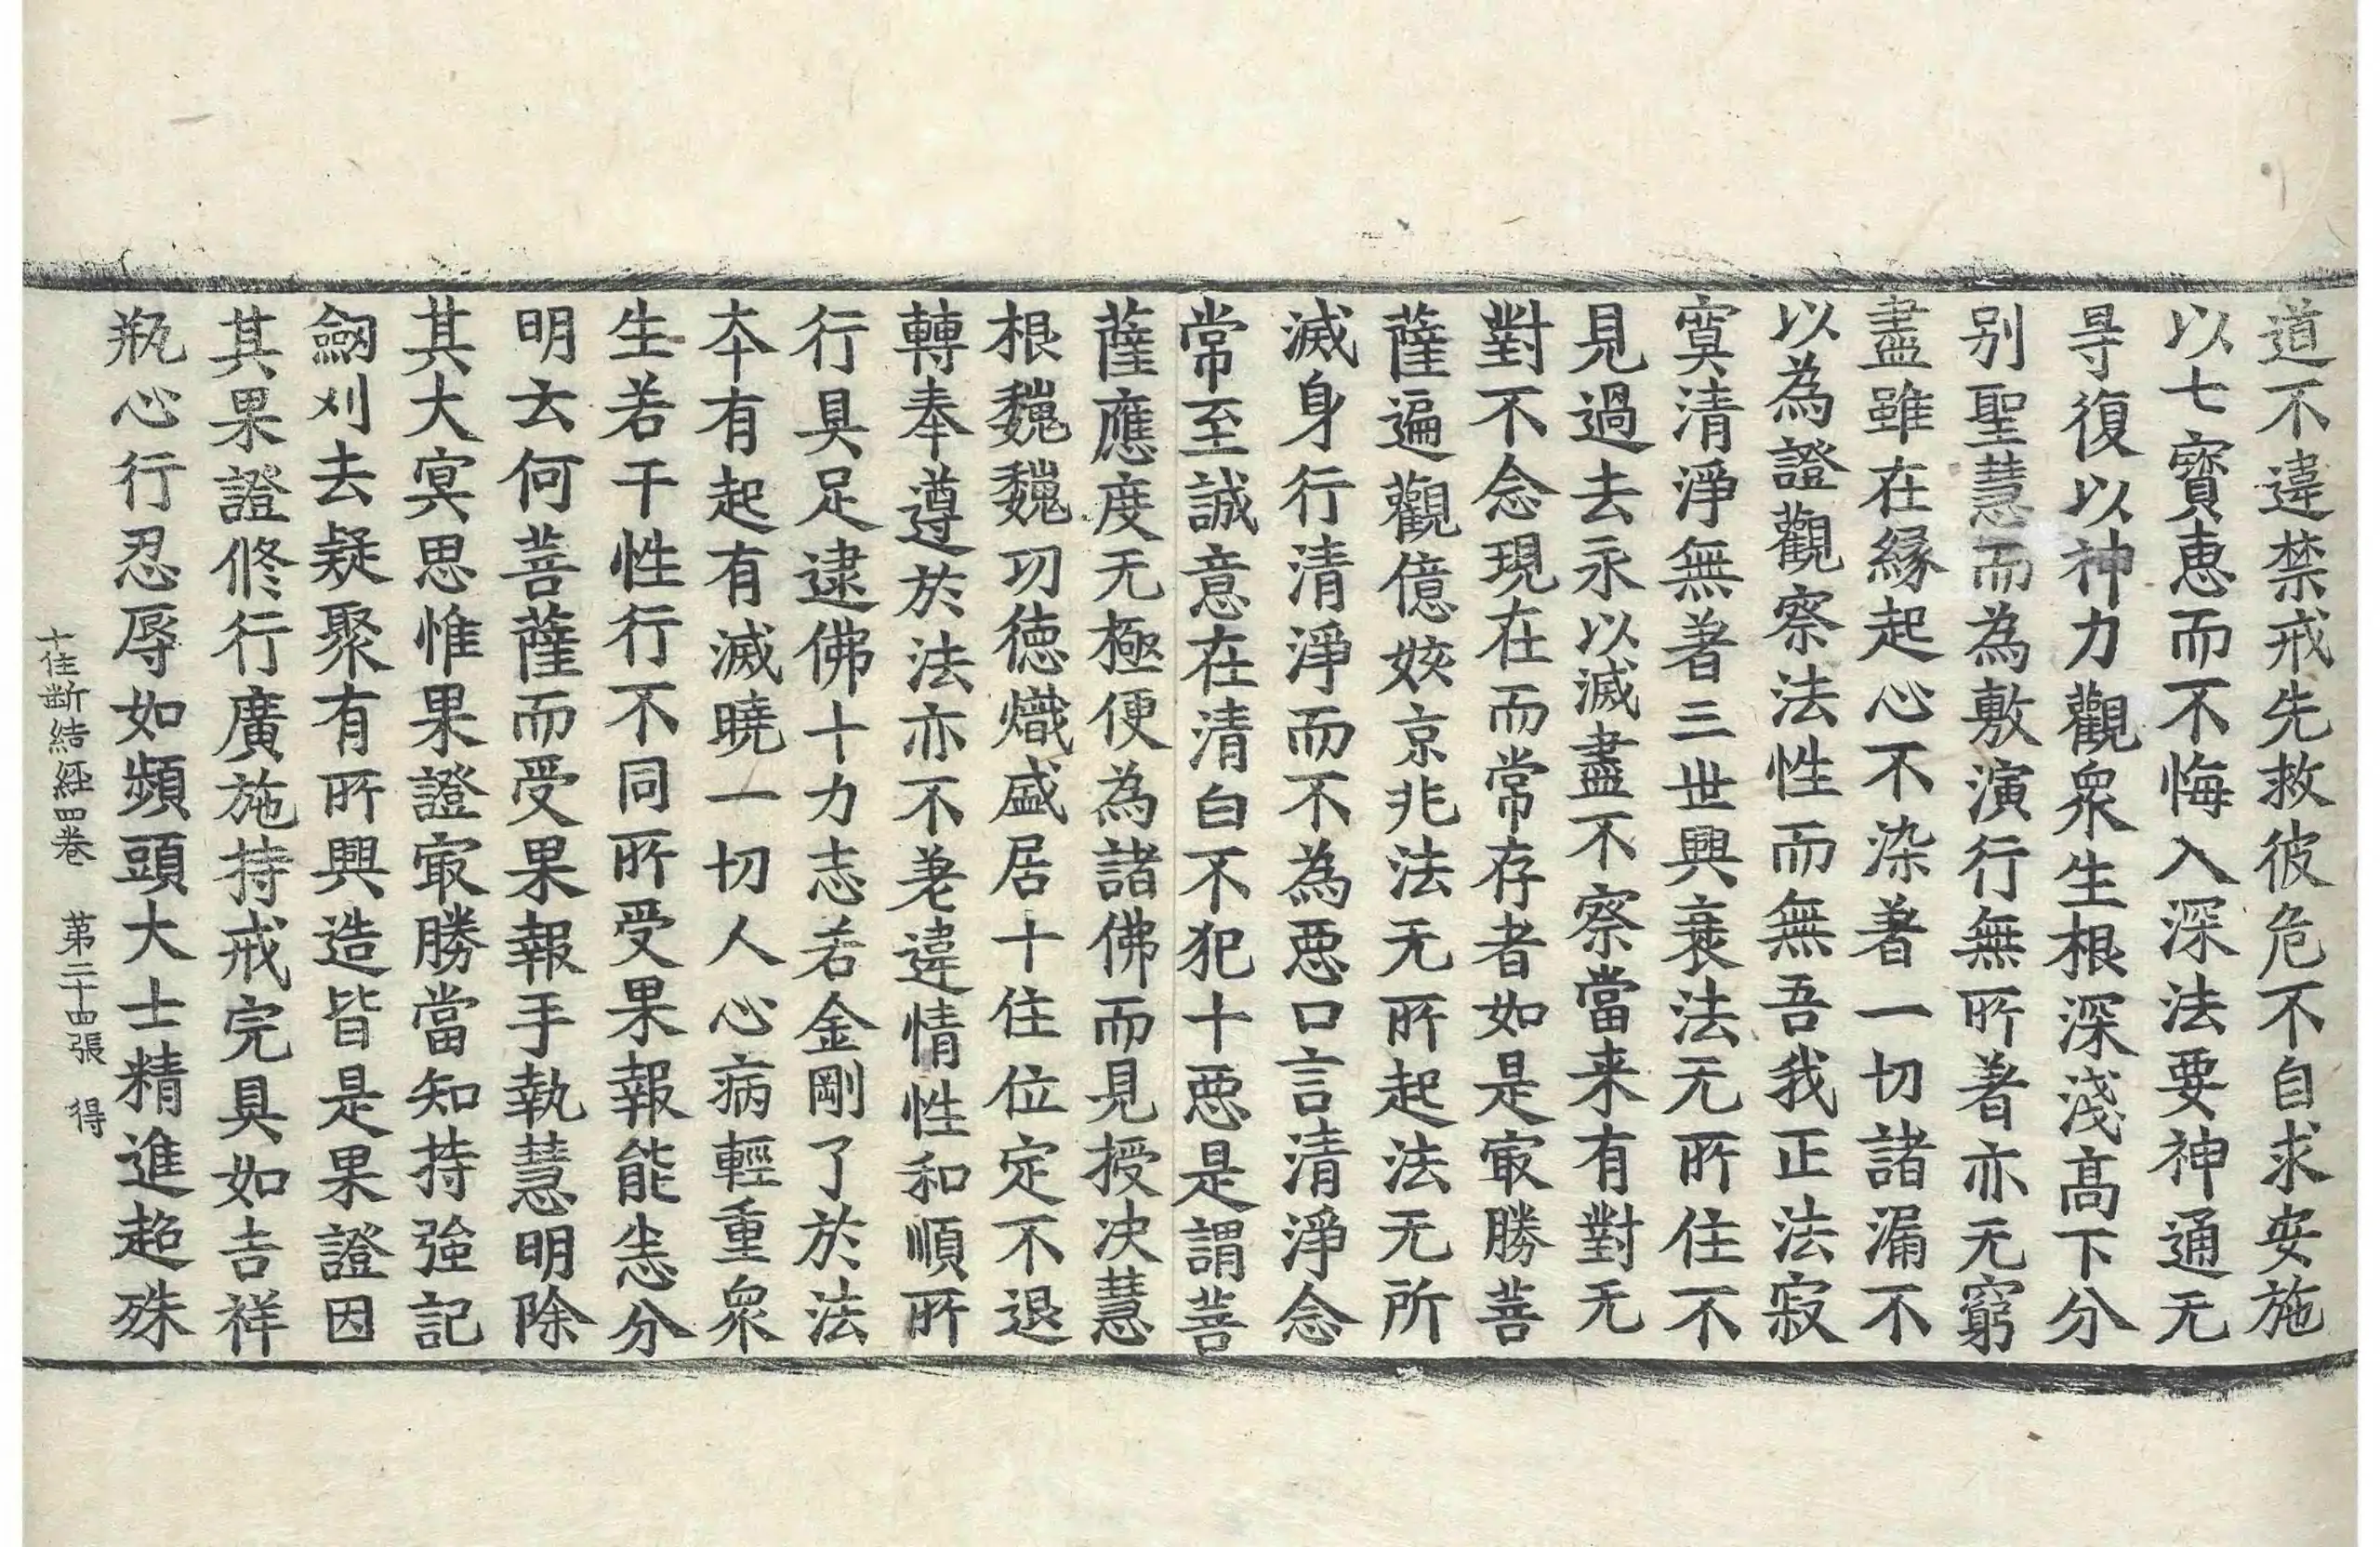 道不違禁戒先救彼危不自求安施
以七寳恵而不悔入深法要神通无
㝵復以神力觀衆生根深淺髙下分
别聖慧而為敷演行無所著亦无窮
盡雖在縁起心不染著一切諸漏不
以為證觀察法性而無吾我正法寂
寞清淨無著三世興衰法无所住不
見過去永以滅盡不察當来有對无
對不念現在而常存者如是冣勝菩
薩遍觀億姟京兆法无所起法无所
滅身行清淨而不為惡口言清淨念
常至誠意在清白不犯十惡是謂菩
薩應度无極便為諸佛而見授决慧
根巍巍功徳熾盛居十住位定不退
轉奉遵於法亦不差違情性和順所
行具足逮佛十力志若金剛了於法
本有起有滅曉一切人心病輕重衆
生若干性行不同所受果報能悉分
明云何菩薩而受果報手執慧明除
其大冥思惟果證冣勝當知持強記
劒刈去疑聚有所興造皆是果證因
其果證修行廣施持戒完具如吉祥
瓶心行忍辱如頻頭大士精進超殊
十住斷結經四卷 第二十四張 得